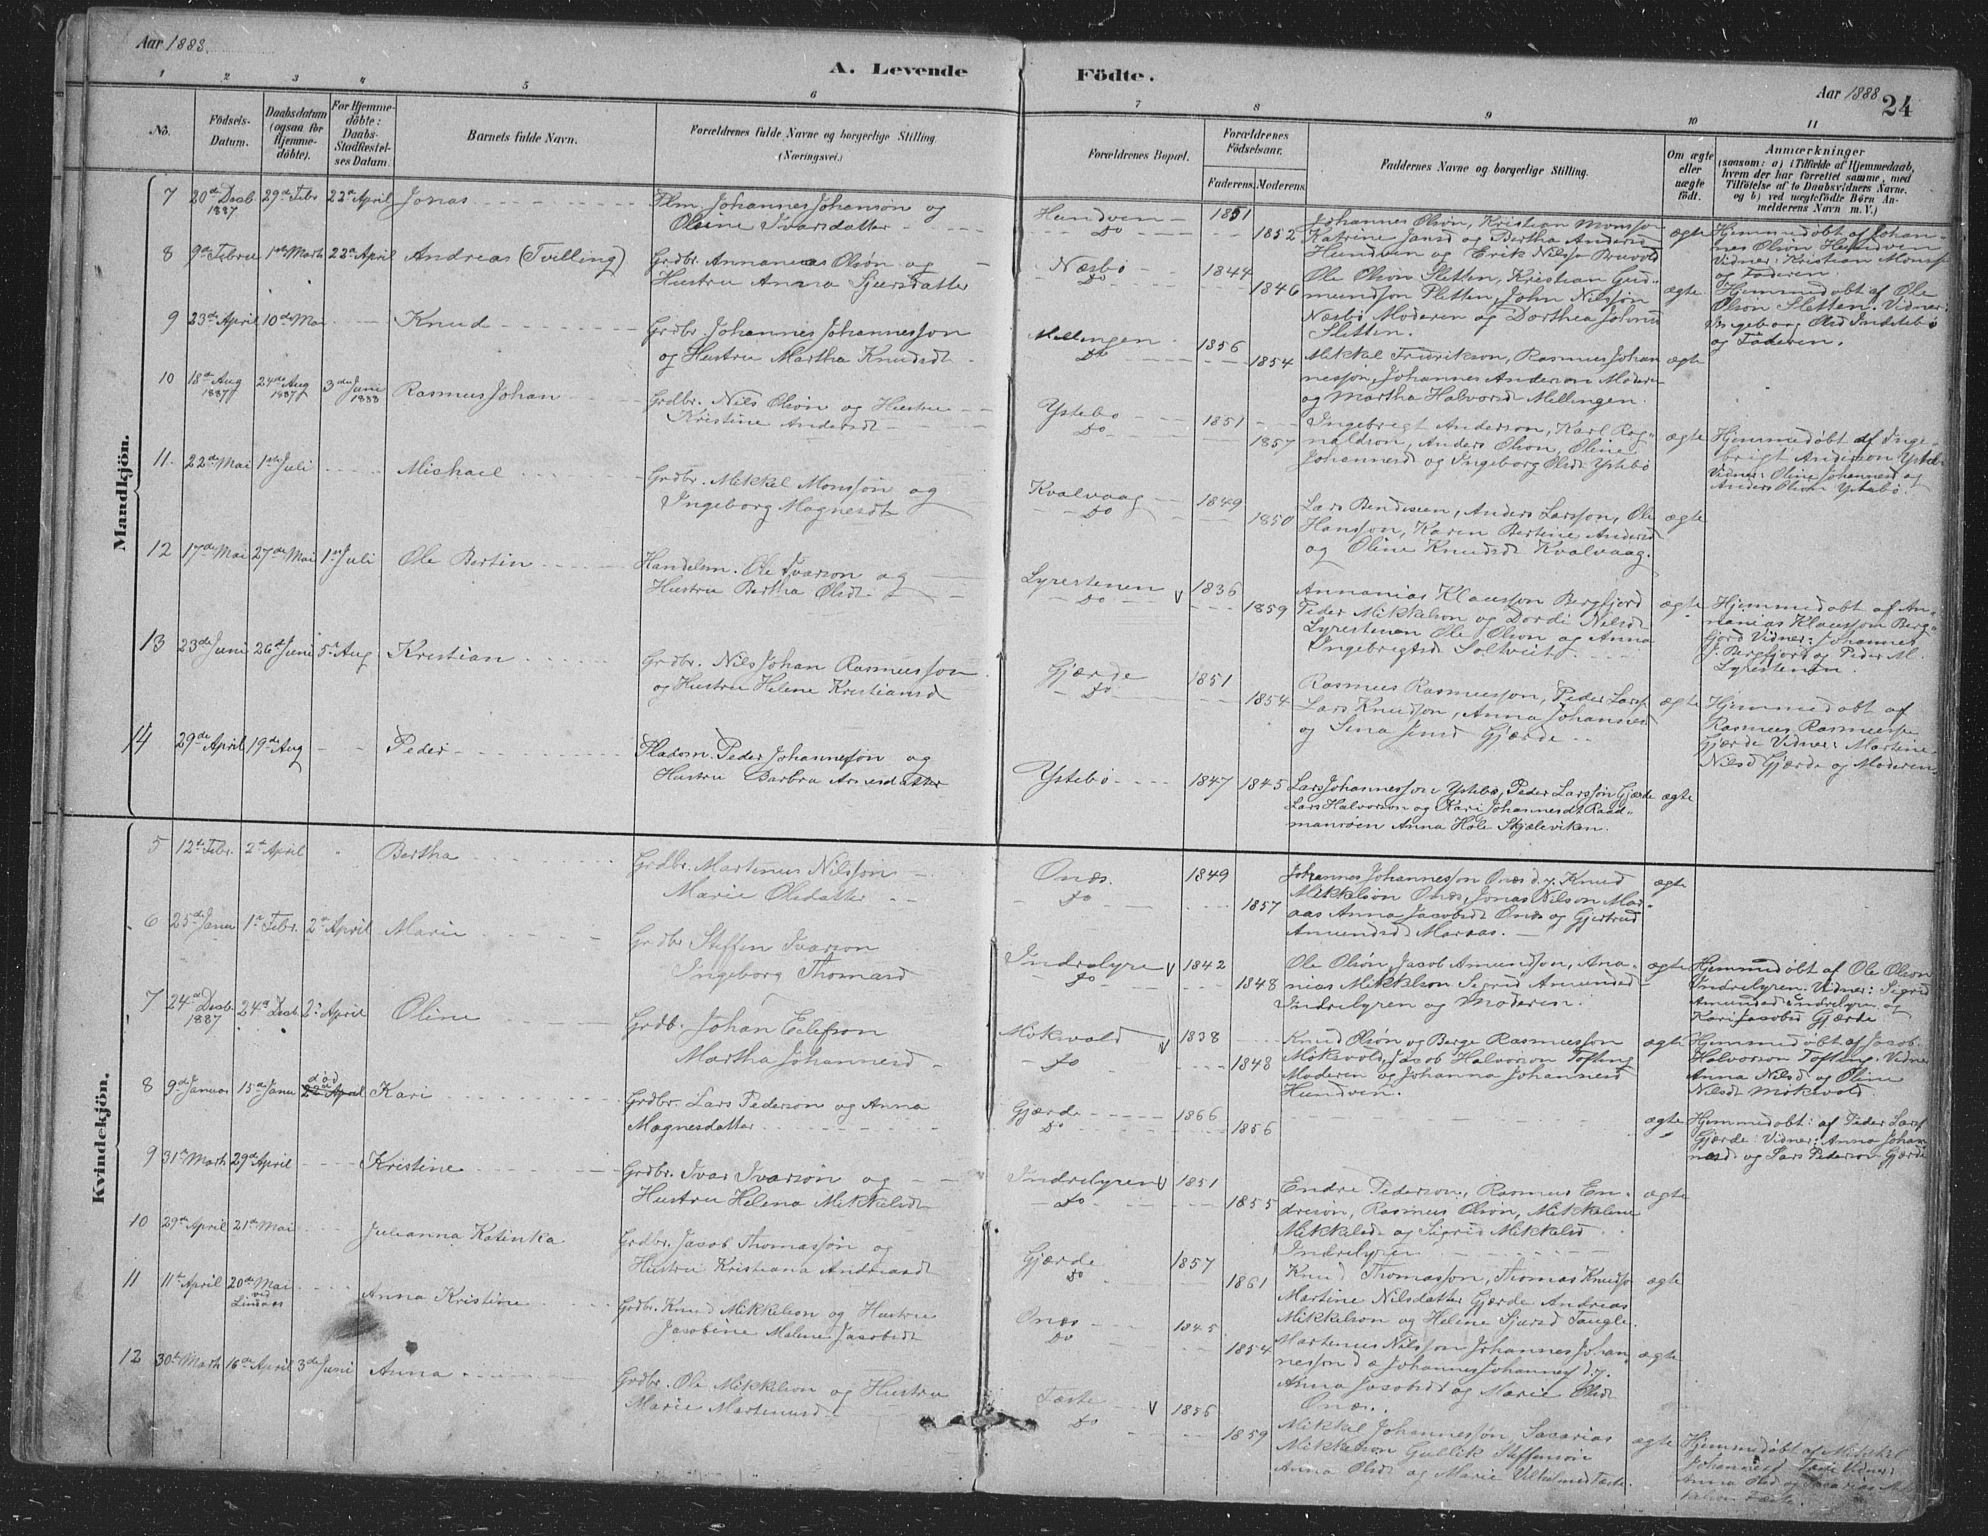 Aar 1888.
A. Levende Födte.
Aar 1888
24
1 2 3 4 5 6 7 8 9 10 11
No.
Födsels-
Datum.
Daabsdatum
(ogsaa for
Hjemme-
döbte).
For Hjemme-
döbte:
Daabs-
Stadfæstel-
ses Datum.
Barnets fulde Navn.
Forældrenes fulde Navne og borgerlige Stilling.
(Næringsvei.)
Forældrenes Bopæl.
Forældrenes
Födselsaar.
Faderens. Moderens.
Faddernes Navne og borgerlige Stilling.
Om ægte
eller
uægte
födt.
Anmærkninger
(saasom: a) i Tilfælde af Hjemmedaab,
hvem der har forrettet samme, med
Tilföielse af to Daabsvidners Navne,
og b) ved uægtefödte Börn An-
melderens Navn m. V.)
Mandkjön.
7 20de Decb 1887 29de Febr 22de April Jonas
Flm. Johannes Johanson og
Oline Ivarsdatter
Hundven 1851
Do 1852
Johannes Olson, Kristian Monsson
Katrine Jansd og Bertha Andersd
Hundven og Erik Nilss Bruvold
ægte
Hjemmedöbt af Johan-
nes Olson Hundven
Vidner: Kristian Monss
og Faderen.
8 9de Febru 1ste Marth 22de April Andreas (Tvilling)
Grdbr. Annanias Olson og
Hustru Anna Sjursdatter
Næsbö 1844
Do 1846
Ole Olson Sletten, Kristian Gud-
mundson Sletten, John Nilsson
Næsbö Moderen og Dorthea Johns
Sletten.
ægte
Hjemmedöbt af Ole
Olson Sletten. Vidner:
Ingeborg Olsd
og Faderen.
9 23de April 10de Mai Knud
Grdbr. Johannes Johannesson
og Hustru Martha Knudsdt
Mellingen 1856
Do 1854
Mikkel Fredrikson, Rasmus Johan
nesson, Johannes Anderson Moderen
og Martha Halvorsd Mellingen.
ægte
10 18de Aug 1887 24de Aug 1887 3de Juni 1888 Rasmus Johan
Grdbr. Nils Olson og Hustru
Kristine Andersdt
Ystebö 1851
Do 1857
Ingebrigt Anderson, Karl Rag-
naldson, Anders Olson, Oline
Johannesd og Ingeborg Olsdt Ystebö
ægte
Hjemmedöbt af Inge-
brigt Anderson Ysteb
Vidner: Oline Johannesd og
Anders Olson Ystebö.
11. 22de Mai 1ste Juli Mishael
Grdbr. Mikkel Monsson og
Ingeborg Magnesdt
Kvalvaag 1849
Do 1850
Lars Bendixen, Anders Larsson, Ole
Hansson, Karen Bertine Andersd
og Oline Knudsdt Kvalvaag.
ægte
12 17de Mai 27de Mai 1ste Juli Ole Bertin
Handelsm. Ole Ivarson og
Hustru Bertha Olsdt
Lyrestenen V 1836
Do 1859
Annanias Klausson Bergfjord
Peder Mikkelson og Dordi Nilsd
Lyrestenen Ole Olson og Anna
Ingebrigtsd Soltveit
ægte
Hjemmedöbt af An-
nanias Klausson Berg-
fjord Vidner: Johannes
J. Bergfjord og Peder M.
Lyrestenen.
13 23de Juni 26de Juni 5te Aug Kristian
Grdbr. Nils Johan Rasmusson
og Hustru Helene Kristiansd
Gjærde 1851
Do 1854
Rasmus Rasmusson, Peder Larss
Lars Knudson, Anna Johannesd
og Sina Jensd Gjærde
ægte
Hjemmedöbt af
Rasmus Rasmusson
Gjærde Vidner: Martine
Nilsd Gjærde og Moderen.
14 29de April 19de Aug Peder
Pladsm. Peder Johannesson og
Hustru Barbra Arnesdatter
Ystebö 1847 1845
Lars Johannesson Ystebö, Peder Larsson Gjærde
Lars Halvorson og Kari Johannesdt Raad-
mansöen Anna Hole Skjæleviken.
ægte
Kvindekjön.
5 12te Febr. 2de April Bertha
Grdbr. Martinus Nilsson
Marie Olsdatter
Onæs. 1849
Do 1857
Johannes Johannesson Onæs d.y. Knud
Mikkelson Onæs, Jonas Nilson Mar-
aas Anna Jacobsdt Onæs og Gjertrud
Amundsd Maraas.
ægte
6 25de Janu 1ste Febr. 2de April Marie
Grdbr Steffen Ivarson
Ingeborg Thomasd
Indrelyre V 1842
Do 1848
Ole Olson, Jacob Amundson, Ana-
nias Mikkelson Sigrid Amundsd
Indrelyren og Moderen.
ægte
Hjemmedöbt af Ole Olson
Indrelyren. Vidner: Sigrid
Amundsd Indrelyren og
Kari Jacobsd Gjærde
7 24de Decb 1887 24de Decb. 2de April Oline
Grdb. Johan Eilefson
Martha Johannesd
Mokvold V 1838
Do 1848
Knud Olson og Berge Rasmusson
Mokevold, Jacob Halvorson Tofting
Moderen og Johanna Johannesd
Hundven.
ægte
Hjemmedöbt af Jacob
Halvorson Tofting. Vidner
Anna Nilsd og Oline
Nilsd Mokevold
8 9de Januar 15de Janu död 22de April Kari
Grdbr. Lars Pederson og Anna
Magnesdatter
Gjærde 1866
Do 1856
ægte
Hjemmedöbt: af Peder Larss
Gjærde: Vidner: Anna Johan
nesd og Lars Pederson Gjærde
9 31te Marth 29de April Kristine
Grdbr. Ivar Ivarson og
Hustru Helena Mikkelsdt
Indrelyren V 1851
Do 1855
Endre Pederson, Rasmus En-
dreson, Rasmus Olson, Mikkeline
Mikkelsd og Sigrid Mikkelsd
Indrelyren
ægte
10 29de April 21de Mai Julianna Katinka
Grdbr. Jacob Thomasson og
Hustru Kristiana Andreasdt
Gjærde 1857
Do 1861
Knud Thomasson, Thomas Knudss
Martine Nilsdatter Gjærde Andreas
Mikkelson og Helene Sjursd Taugle.
ægte
11 11te April 20de Mai ved Lindaas Anna Kristine
Grdbr. Knud Mikkelson og Hustru
Jacobine Malene Jacobsdt
Onæs 1845
Do 1854
Martinus Nilsson, Johannes Johan-
nesson d æ Johannes Johanness d.y.
Anna Jacobsdt og Marie Olsdt
Onæs.
ægte
12 30te Marth 16de April 3de Juni Anna
Grdbr. Ole Mikkelson og Hustru
Marie Martinusd
Fæste V 1856
Do 1859
Mikkel Johannesson, Sacarias
Mikkelson Gullik Steffenson
Anna Olsdt og Marie Vilhelmsd Fæste.
ægte
Hjemmedöbt af Mikkel
Johanness Fæste Vidner:
Anna Olsd og Sacarias Mik
kelson Fæste.